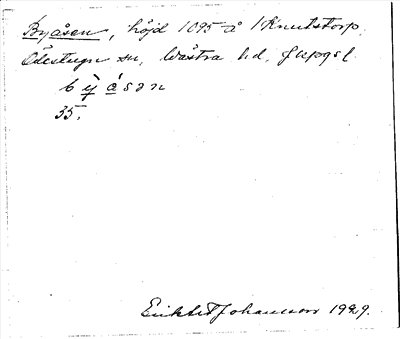 Byåsen, höjd 1095 å 1 Knutstorp,
Ödestugu sn, Västra hd, Jkpgs l.
b ỳ̱ á̱ s ə n
35.
Johansson 1929.